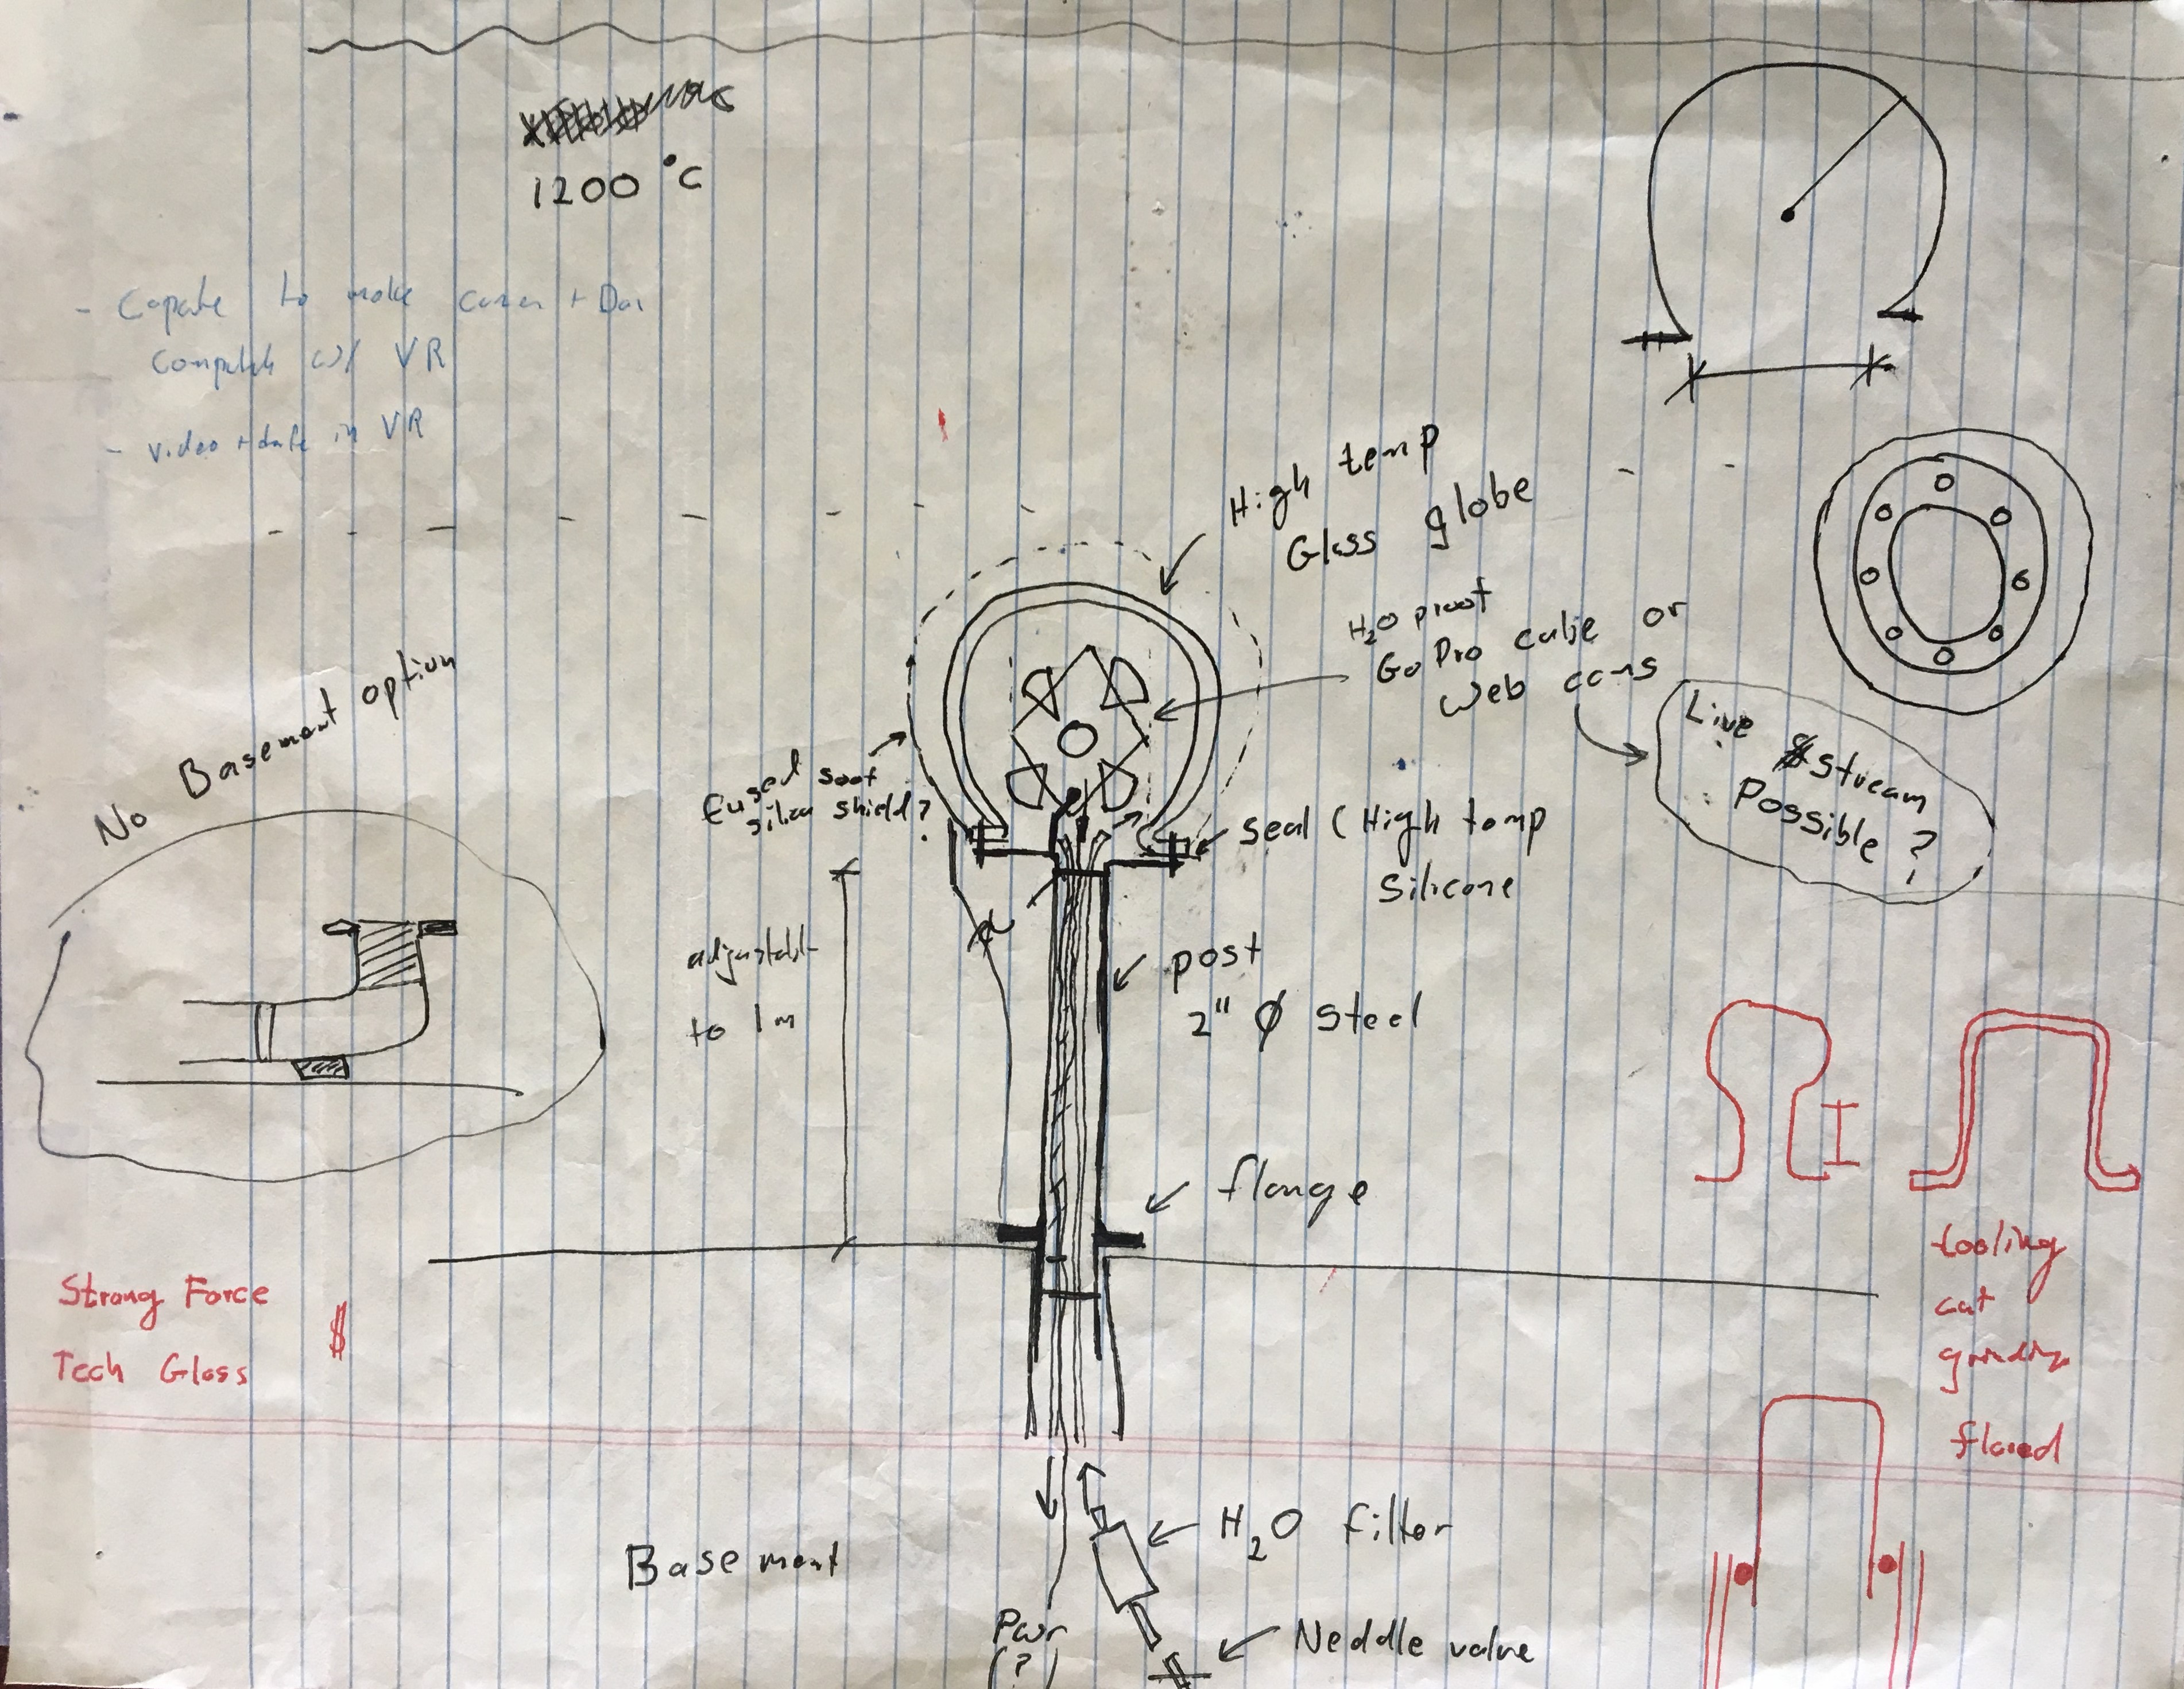 1200 °C
to make
w/ VR
- video + data in VR
High temp
Glass globe
H2O proof
GoPro cube or
Web cams
Live Stream
Possible ?
No Basement option
Fused soot
silica shield?
seal (High temp
Silicone
adjustable
to 1m
post
2" Ø Steel
flange
Strong Force
Tech Glass
$
tooling
cut
grinding
flared
Basement
H2O Filter
Pwr
(?)
Neddle valve